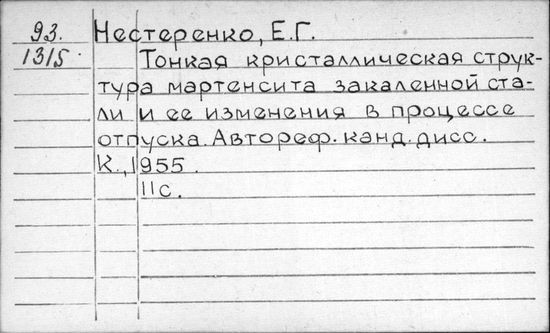 93. Нестеренко, Е.Г.
1315. Тонкая кристаллическая струк-
тура мартенсита закаленной ста-
ли и ее изменения в процессе
отпуска. Автореф. канд. дисс.
К., 1955.
11с.